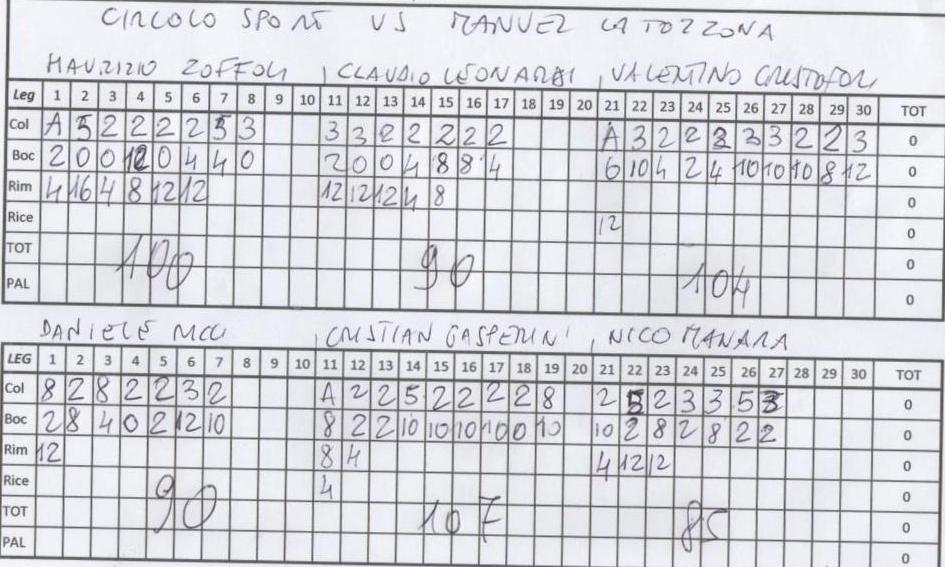 CIRCOLO SPORT VS MANUEL LA TOZZONA
MAURIZIO ZOFFOLI , CLAUDIO LEONARDI , VALENTINO CRISTOFORI
Leg 1 2 3 4 5 6 7 8 9 10 11 12 13 14 15 16 17 18 19 20 21 22 23 24 25 26 27 28 29 30 TOT
Col A 5 2 2 2 2 5 3 3 3 2 2 2 2 2 A 3 2 2 3 3 3 2 2 3 0
Boc 2 0 0 12 0 4 4 0 2 0 0 4 8 8 4 6 10 4 2 4 10 10 10 8 12 0
Rim 4 16 4 8 12 12 12 12 12 4 8 0
Rice 12 0
TOT 100 90 104 0
PAL 0
DANIELE RICCI , CRISTIAN GASPERINI , NICO MANARA
LEG 1 2 3 4 5 6 7 8 9 10 11 12 13 14 15 16 17 18 19 20 21 22 23 24 25 26 27 28 29 30 TOT
Col 8 2 8 2 2 3 2 A 2 2 5 2 2 2 2 8 2 5 2 3 3 5 3 0
Boc 2 8 4 0 2 12 10 8 2 2 10 10 10 10 0 10 10 2 8 2 8 2 2 0
Rim 12 8 4 4 12 12 0
Rice 4 0
TOT 90 107 85 0
PAL 0